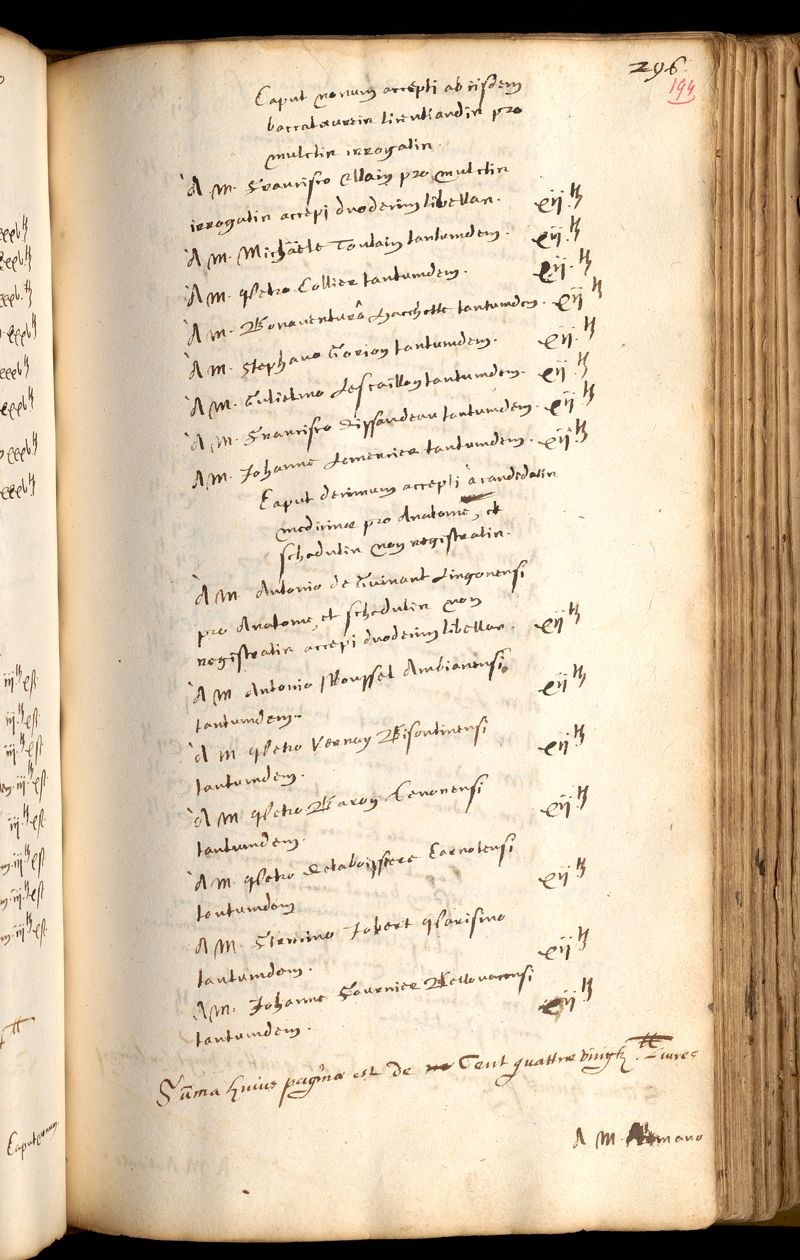 296
194
Caput nonum accepti ab iisdem
baccalaureis licentiandis pro
mulctis irrogatis.
A M. Francisco Allain pro mulctis
irrogatis accepi duodecim libellas. xij.lt
A M. Michaële Toutain tantumdem. xij.lt
A M. Petro Collier tantumdem. xij.lt
A M. Bonaventurâ Hacchette tantumdem. xij lt
A M. Stephano Gorion tantumdem. xij.lt
A M. Gulielmo Lescaillon tantumdem. xij.lt
A M. Francisco Lissandeau tantumdem. xij lt
A M. Johanne Lemercier tantumdem. xij lt
Caput decimum accepti à candidatis
medicinæ pro Anatome, et
schedulis non registratis.
A M Antonio de Guinant Lingonensi
pro Anatome, et schedulis non
registratis accepi duodecim libellas. xij lt
A M Antonio Roussel Ambianensi
tantumdem. xij lt
A M Petro Vernay Bisontinensi
tantumdem. xij lt
A M Petro Baron Cenonensi
tantumdem. xij lt
A M. Petro Delaboissiere Carnotensi
tantumdem xij lt
A M. Jobert Parisino
tantumdem. xij lt
A M. Johanne Fournier Bellovacensi
tantumdem. xij lt
Suma huius paginæ est de Cent quattre vingtz Livres
A M. mano
xxxb lt
iij lt
Caput nonum